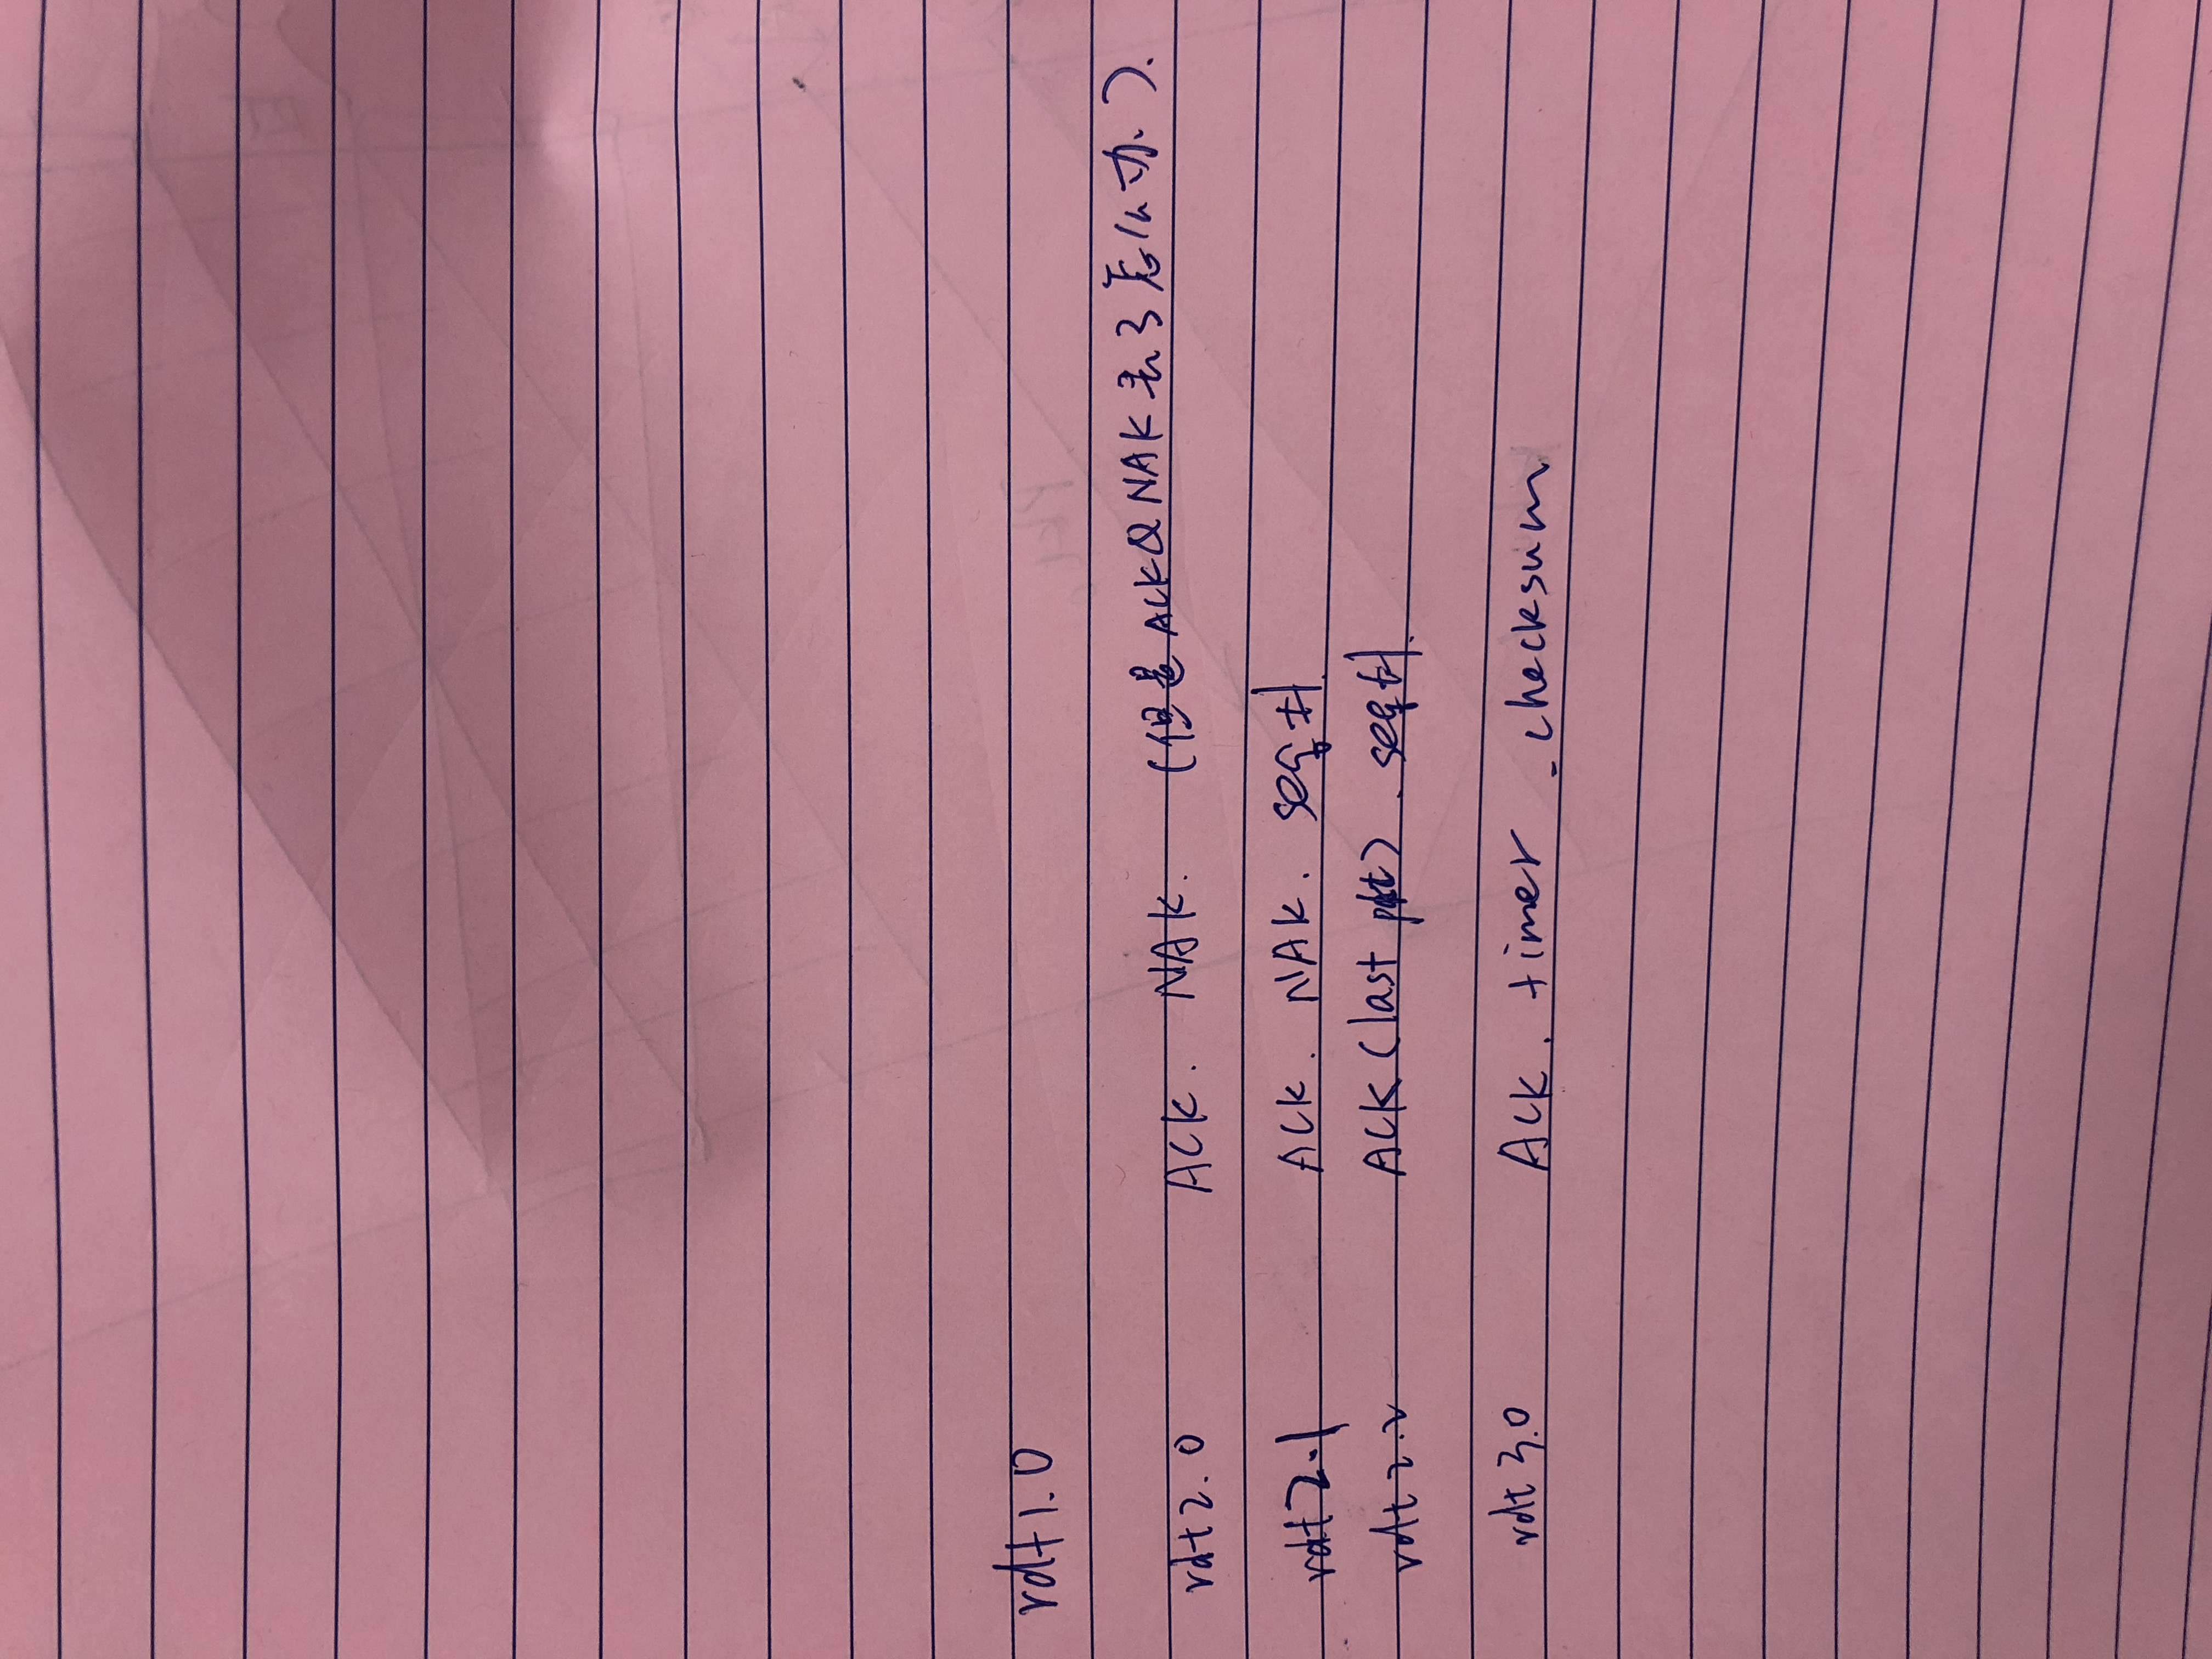 rdt1.0
rdt2.0 ACK. NAK. (但是ACK&NAK丢了怎么办、).
rdt2.1 ACK. NAK. seq #.
rdt2.2 ACK (last pkt). seq #.
rdt3.0 ACK. timer. checksum